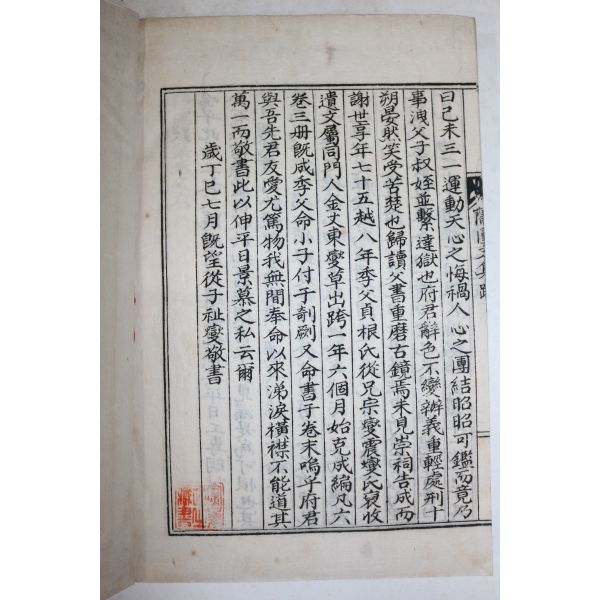 曰己未三一運動天心之悔禍人心之團結昭昭可鑑而竟乃
事洩父子叔姪並繫達獄也府君辭色不變辨義重輕處刑十
朔晏然笑受苦楚也歸讀父書重磨古鏡焉未見崇祠告成而
謝世享年七十五越八年季父貞根氏從兄宗燮震燮氏裒收
遺文屬同門人金丈東燮草出跨一年六個月始克成編凡六
卷三冊旣咸季父命小子付于剞劂又命書于卷末嗚乎府君
與吾先君友愛尤篤物我無間奉命以來涕淚橫襟不能道其
萬一而敬書此以伸平日景慕之私云爾
歲丁巳七月旣望從子祉燮敬書